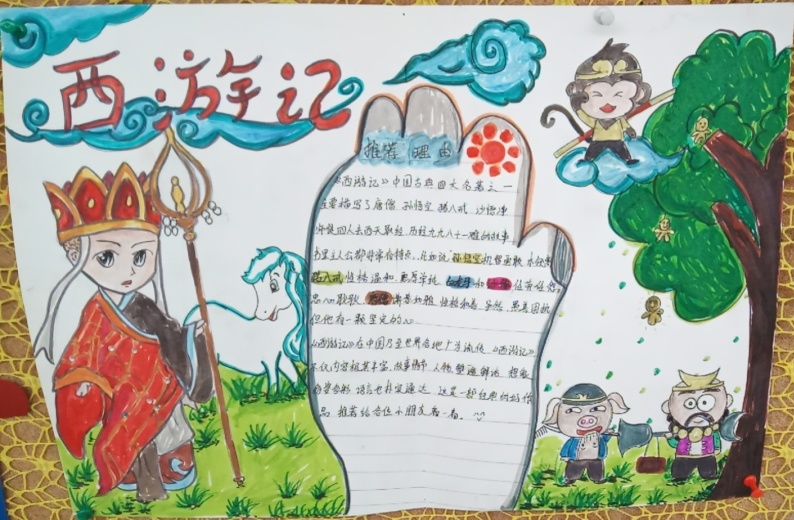 西游记
推荐 理由
《西游记》中国古典四大名著之一
主要描写了唐僧 孙悟空 猪八戒 沙悟净
师徒四人去西天取经 历经九九八十一难的故事
书里主人公都非常有特点 比如说 孙悟空机智勇敢
猪八戒 性格温和 憨厚 和 任劳任怨
忠心耿耿 唐僧 性格和善
但他有一颗坚定的心
《西游记》在中国乃至世界各地广为流传 《西游记》
不仅内容极其丰富 故事情节 人物塑造鲜活 想象
语言也朴实通达 这是一部经典的好作
品 推荐给各位小朋友看一看。